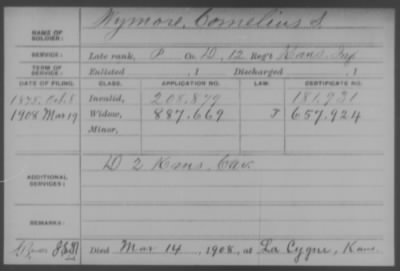 NAME OF SOLDIER: Wymore, Cornelius S.
SERVICE: Late rank, P Co. D, 12 Reg't Kans. Inf
TERM OF SERVICE: Enlisted , 1 Discharged , 1
DATE OF FILING. CLASS. APPLICATION NO. LAW. CERTIFICATE NO.
1875, Oct. 8 Invalid, 208,879 181,931
1908 Mar 19 Widow, 887.669 657,924
Minor,
ADDITIONAL SERVICES: D 2 Kans. Cav.
REMARKS:
Died Mar 14, 1908, at La Cygne, Kans.